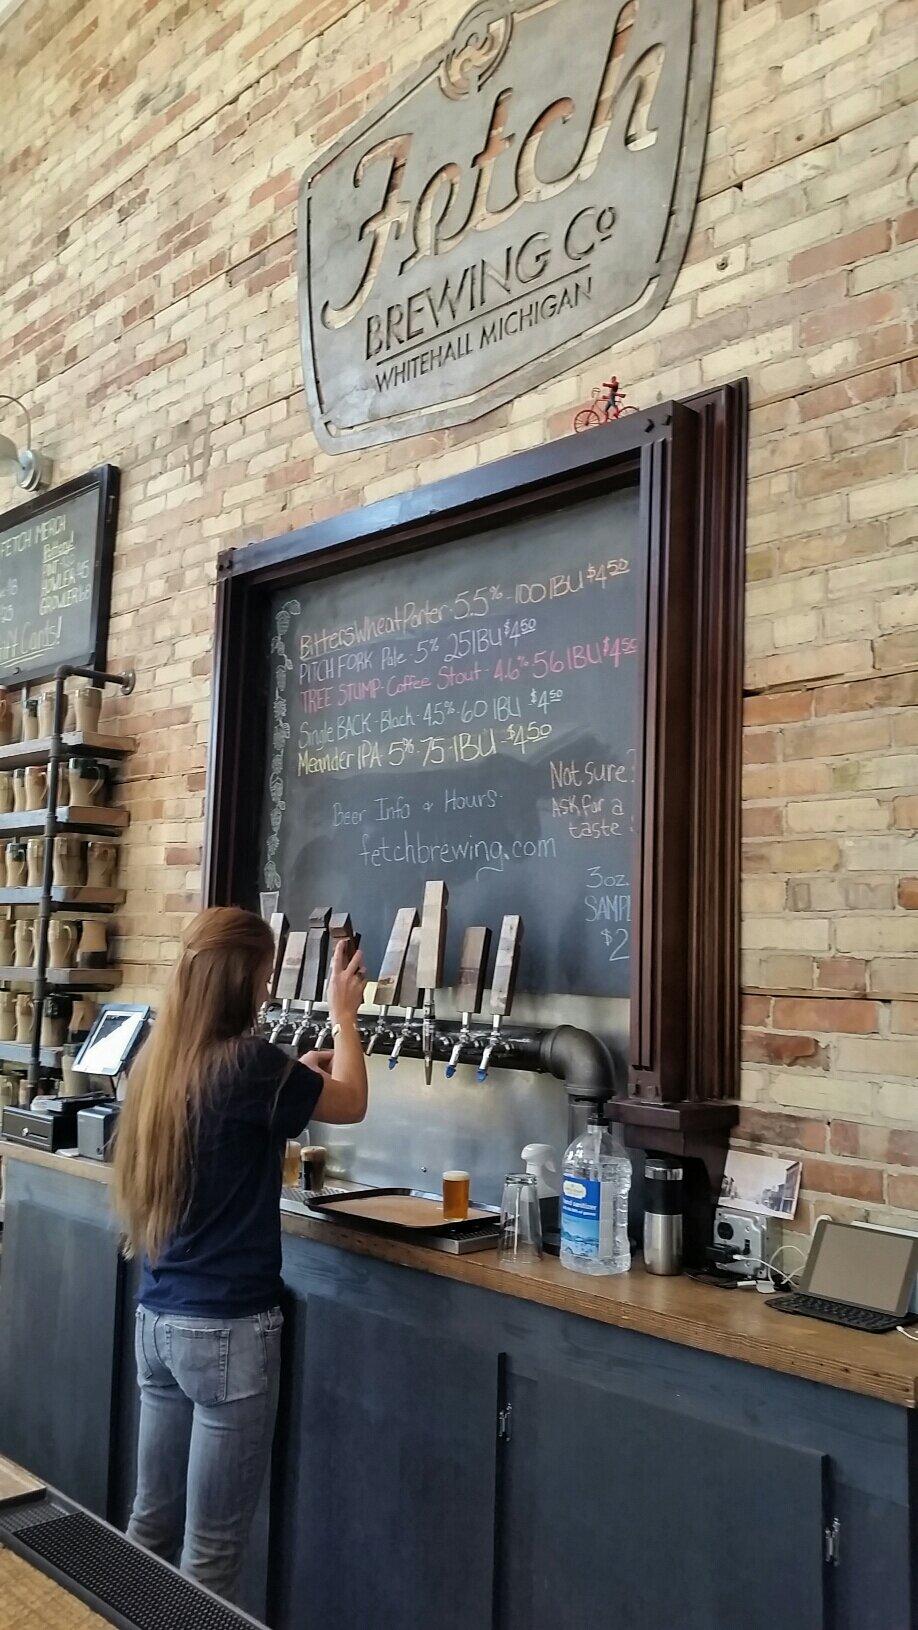 Fetch
BREWING Co
WHITEHALL MICHIGAN
FETCH MERCH
GROWLER
Bitters Wheat Porter - 5.5% - 100 IBU $4.50
PITCH FORK Pale - 5% 25 IBU $4.50
TREE STUMP - Coffee Stout - 4.6% - 56 IBU $4.50
Single BACK - Black - 4.5% - 60 IBU $4.50
Meander IPA 5% - 75 - IBU - $4.50
Not sure?
ASK for a
taste!
Beer Info & Hours -
fetchbrewing.com
3oz.
SAMPL
$2
hand sanitizer